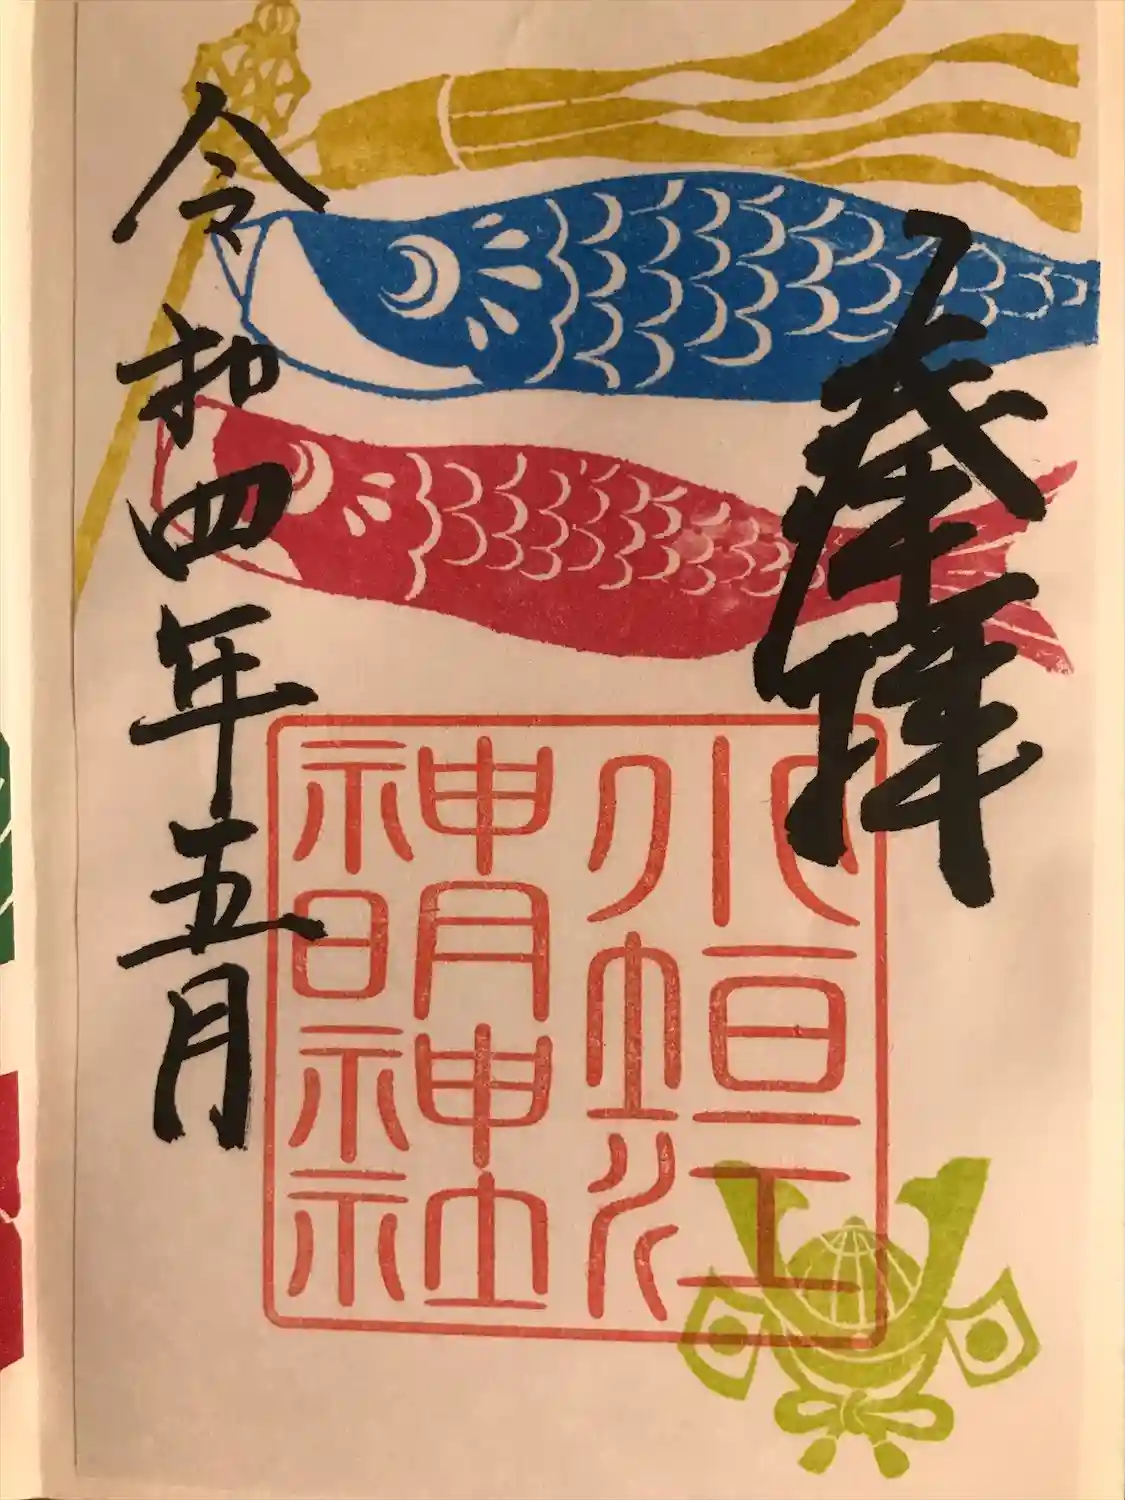 奉拝
小垣江
神明神社
令和四年五月